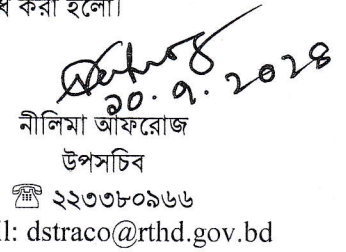 করা হলো।
২০.৭.২০২৪
নীলিমা আফরোজ
উপসচিব
☎ ২২৩৩৮০৯৬৬
l: dstraco@rthd.gov.bd